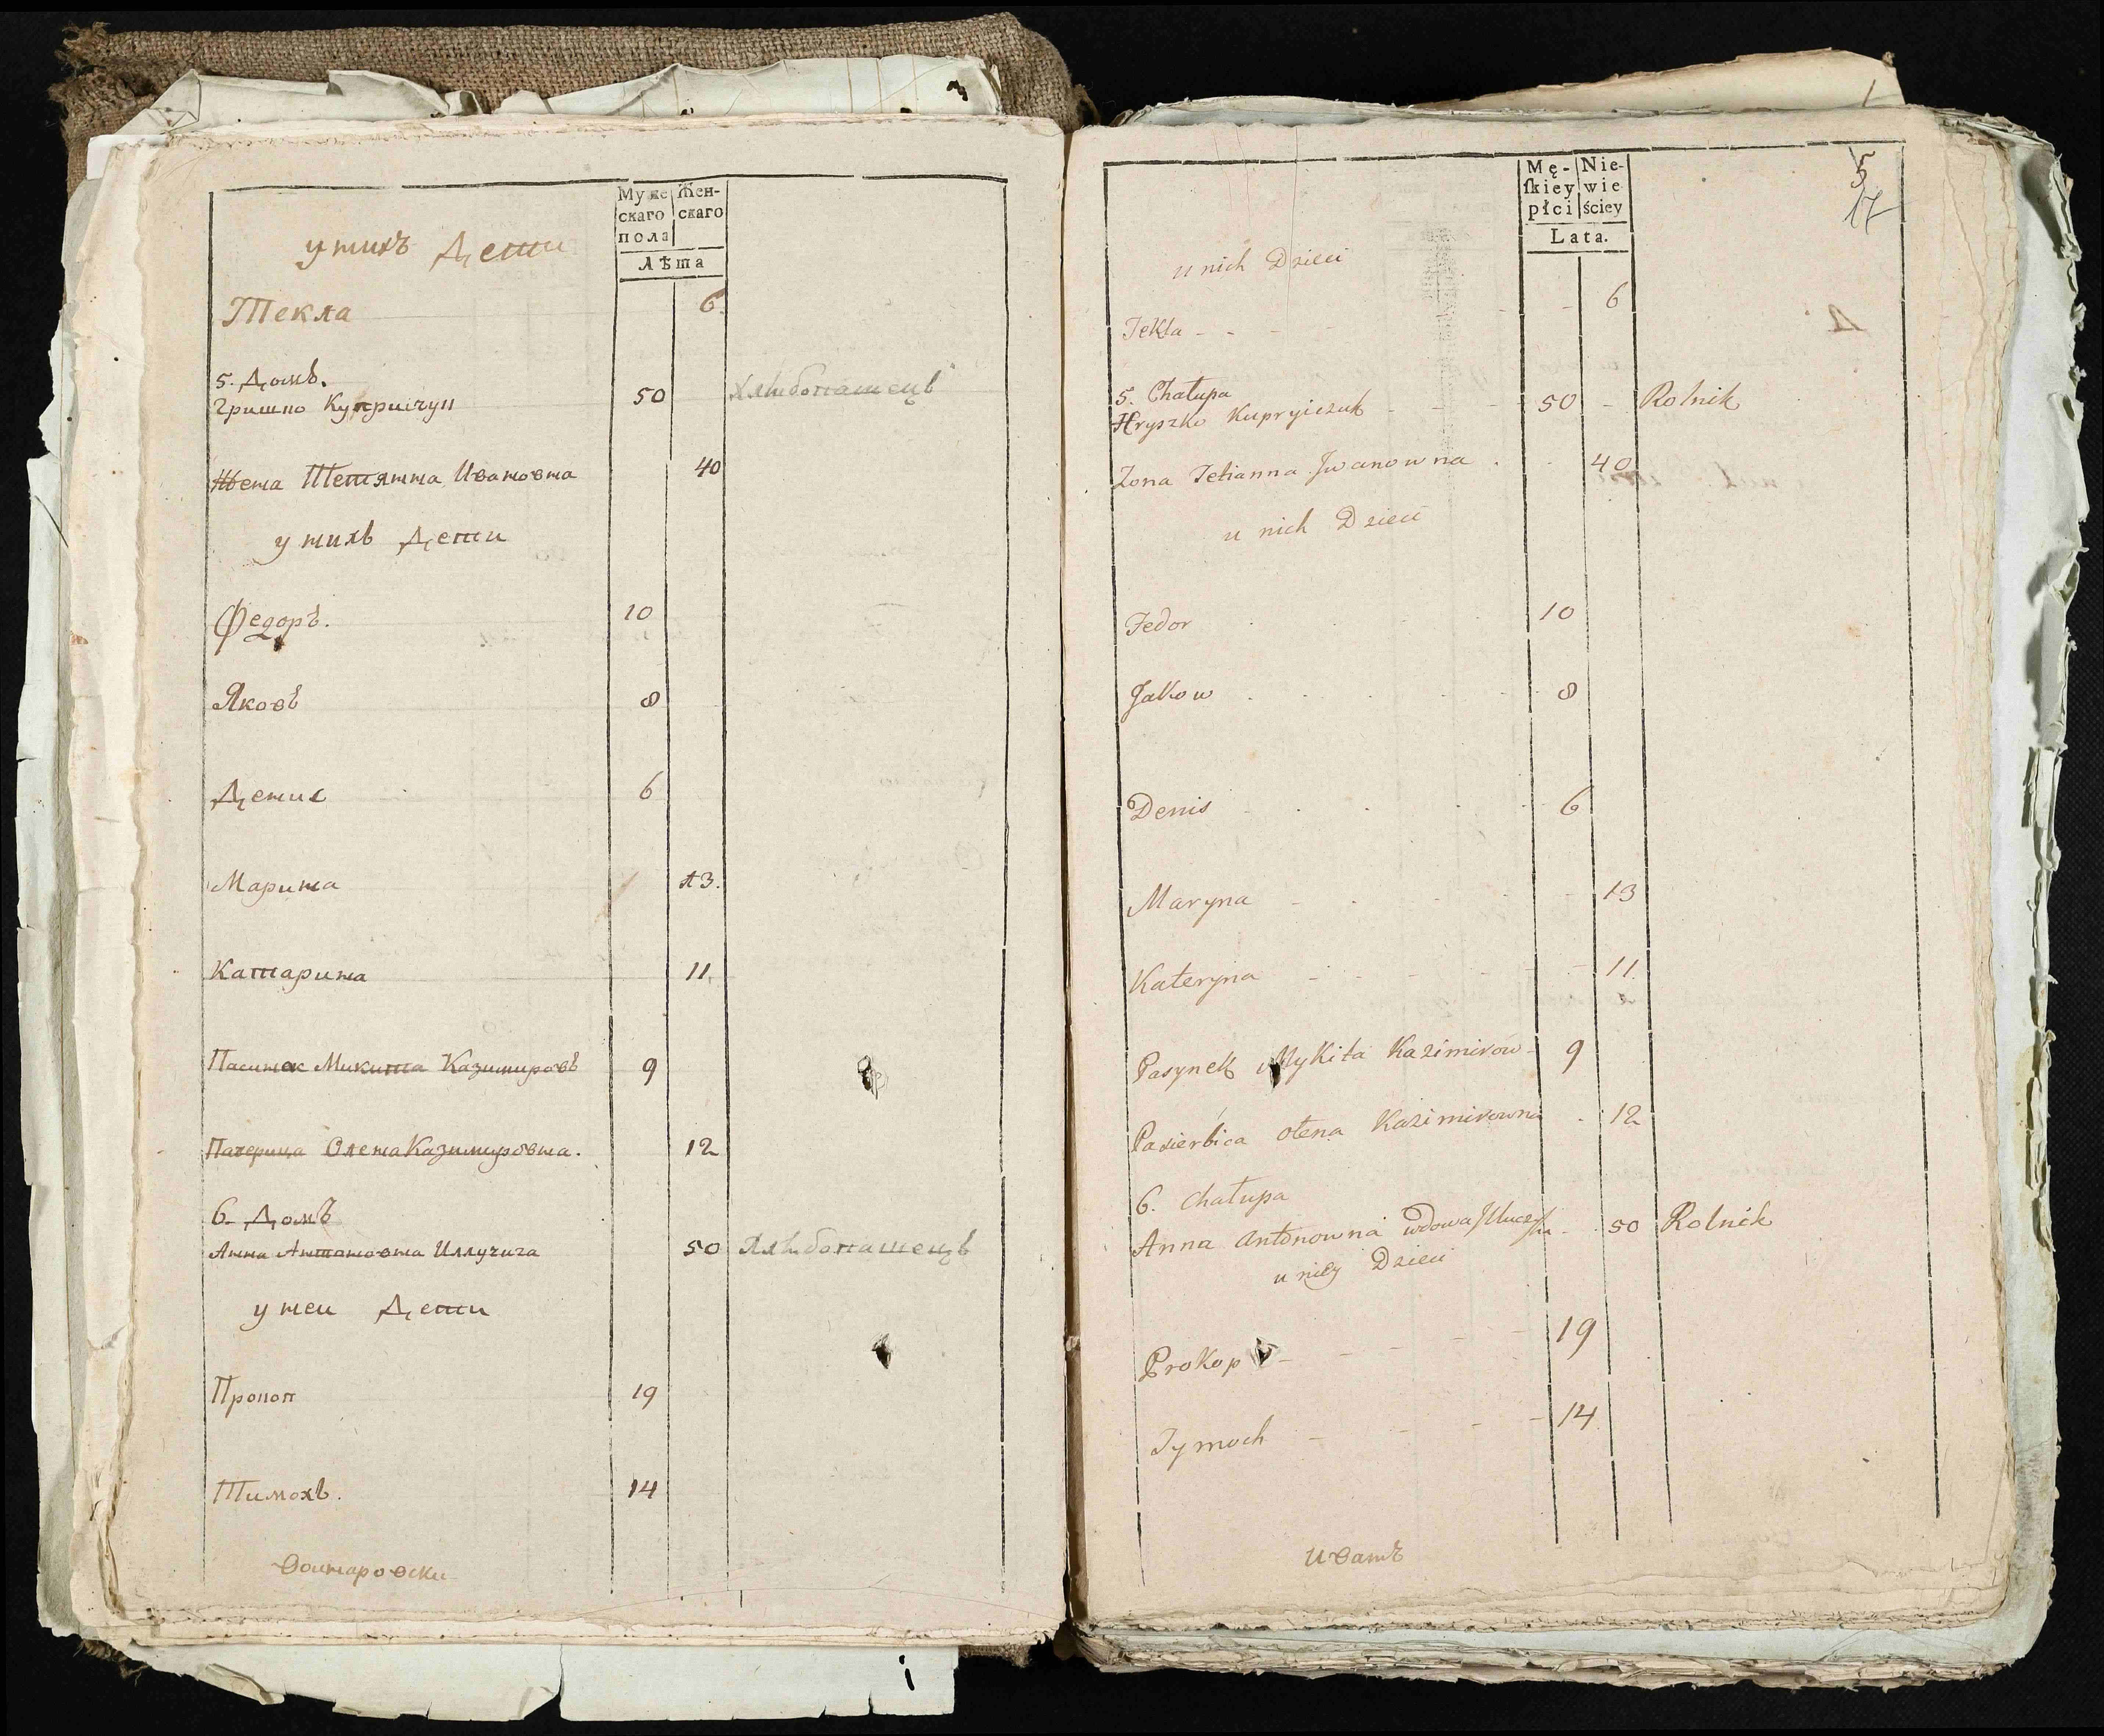 Муже
скаго
пола
Жен-
скаго
Лѣта
у нихъ Дети
Текла 6
5. Домъ.
Гришко Куприичук 50 Хлѣбопашецъ
Жена Тетянна Ивановна 40
у нихъ Дети
Федоръ. 10
Яковъ 8
Денис 6
Марина 13.
Катарина 11.
Пасинок Микита Казимировъ 9
Олена Казимировна. 12
6. Домъ
Анна Антоновна 50 Хлѣбопашецъ
у неи Дети
Прокоп 19
Тимохъ. 14
Mę-
ſkiey
płci
Nie-
wie
ściey
Lata.
5
17
u nich Dzieci
Tekla - - - 6
5. Chałupa
Hryszko Kupryiczuk - 50 - Rolnik
Żona Tetianna Jwanowna 40
u nich Dzieci
Fedor 10
Jakow 8
Denis 6
Maryna 13
Kateryna 11
Pasynek Mykita Kazimirow - 9
Pasierbica Ołena Kazimirowna 12
6. Chałupa
Anna Antonowna wdowa 50 Rolnik
u niey Dzieci
Prokop - 19
Tymoch - 14
Иванъ